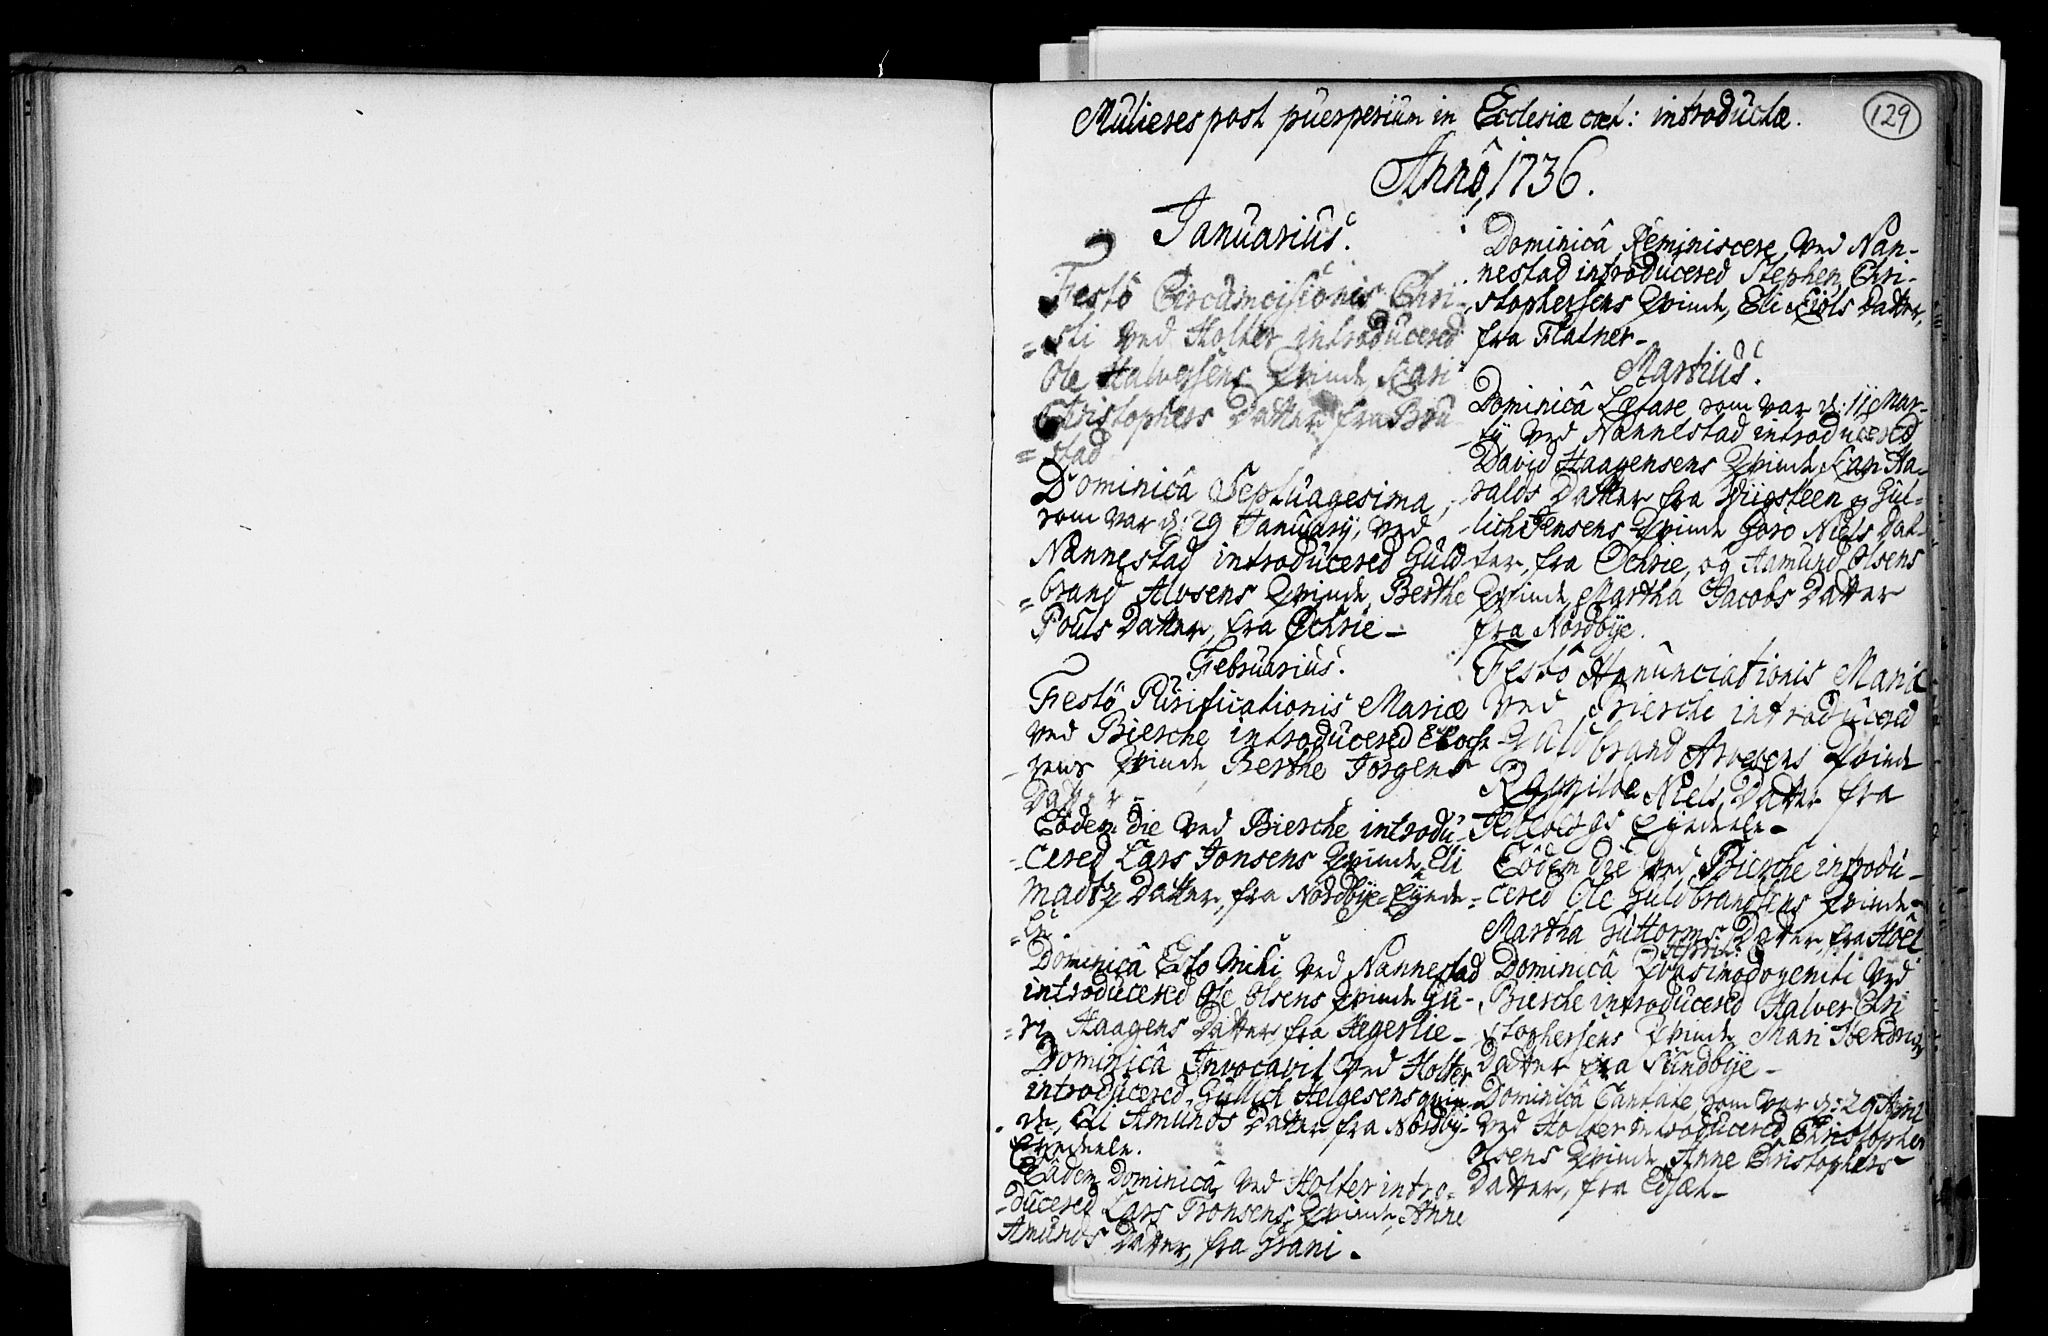 Mulieres post puerperium in Ecclesiæ cæt: introductæ.
129
Annô 1736.
Januarius.
Festô Circumcisionis Chri-
=sti ved Holter introducered
Ole Halversens Qvinde, Kari
Christophers Datter fra Bru
=stad
Dominicâ Septuagesima,
som var d: 29 Januarij, ved
Nannestad introducered Guld
=brand Alvsens Qvinde, Berthe
Pouls Datter, fra Ochrie-
Februarius.
Festô Purificationis Mariæ
ved Bierche introducered
-zens Qvinde, Berthe Jørgens
Datter-
Eôdem die ved Bierche introdu-
-cered Lars Jonsens Qvinde Eli
Madtz Datter, fra Nordbÿe-Eÿnde-
=le.
Dominicâ Esto Mihi ved Nannestad
introducered Ole Olsens Qvinde Gu-
=ri Haagens Datter fra Hegerlie-
Dominicâ Invocavit ved Holter
introducered Gullich Helgesens qvin-
de, Eli Amunds Datter fra Nordbÿ-
Eÿedeele.
Eâdem Dominicâ ved Holter intro-
-ducered Lars Tronsens Qvinde, Anne
Amunds Datter, fra Grani-
Dominicâ Reminiscere ved Nan-
nestad introducered Stephen Chri-
stophersens Qvinde, Eli Kiols Datter,
fra Flatner-
Martius.
Dominicâ Lætare som var d: 11 Mar-
-tij ved Nannestad introducered
David Haagensens Qvinde Kari Ha-
ralds Datter fra Wiigsteen og Gul-
-lich Jensens Qvinde Goro Niels Dat-
ter, fra Ochrie, og Aamund Olsens
Qvinde Martha Jacobs Datter
fra Nordbÿe.
Festô Annunciationis Mariæ
ved Bierche introducered
Guldbrand Arvesens Qvinde
Ragnilde Niels Datter fra
Holbergs Eÿedeele-
Eôdem die ved Bierche introdu-
cered Ole Guldbrandsens Qvinde
Martha Guttorms Datter fra Hoel
Aprilis.
Dominicâ Qvasimodogeniti ved
Bierche introducered Halver Chri
stophersens Qvinde Mari Hendrigs
Datter fra Sundbÿe-
Dominicâ Cantate som var d: 29 April
ved Holter introducered Christopher
Olsens Qvinde Anne Christophers
Datter, fra